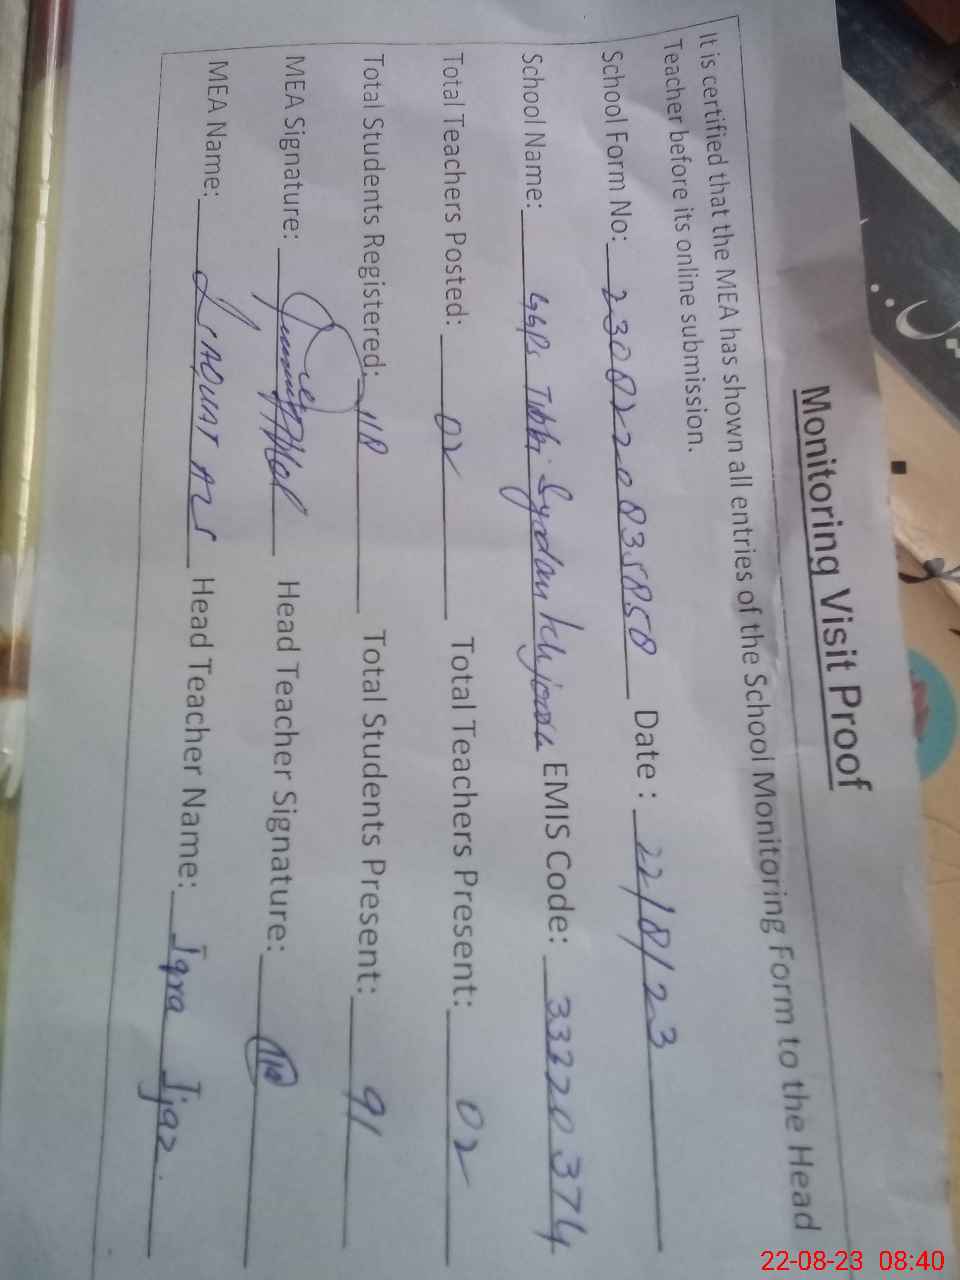 Monitoring Visit Proof
It is certified that the MEA has shown all entries of the School Monitoring Form to the Head
Teacher before its online submission.
School Form No: 230822083585 Date : 22/8/23
School Name: GGPS Tibbi Syedan EMIS Code: 33220374
Total Teachers Posted: 02 Total Teachers Present: 02
Total Students Registered: 118 Total Students Present: 91
MEA Signature: Head Teacher Signature:
MEA Name: LIAQUAT Head Teacher Name: Iqra Ijaz.
22-08-23 08:40